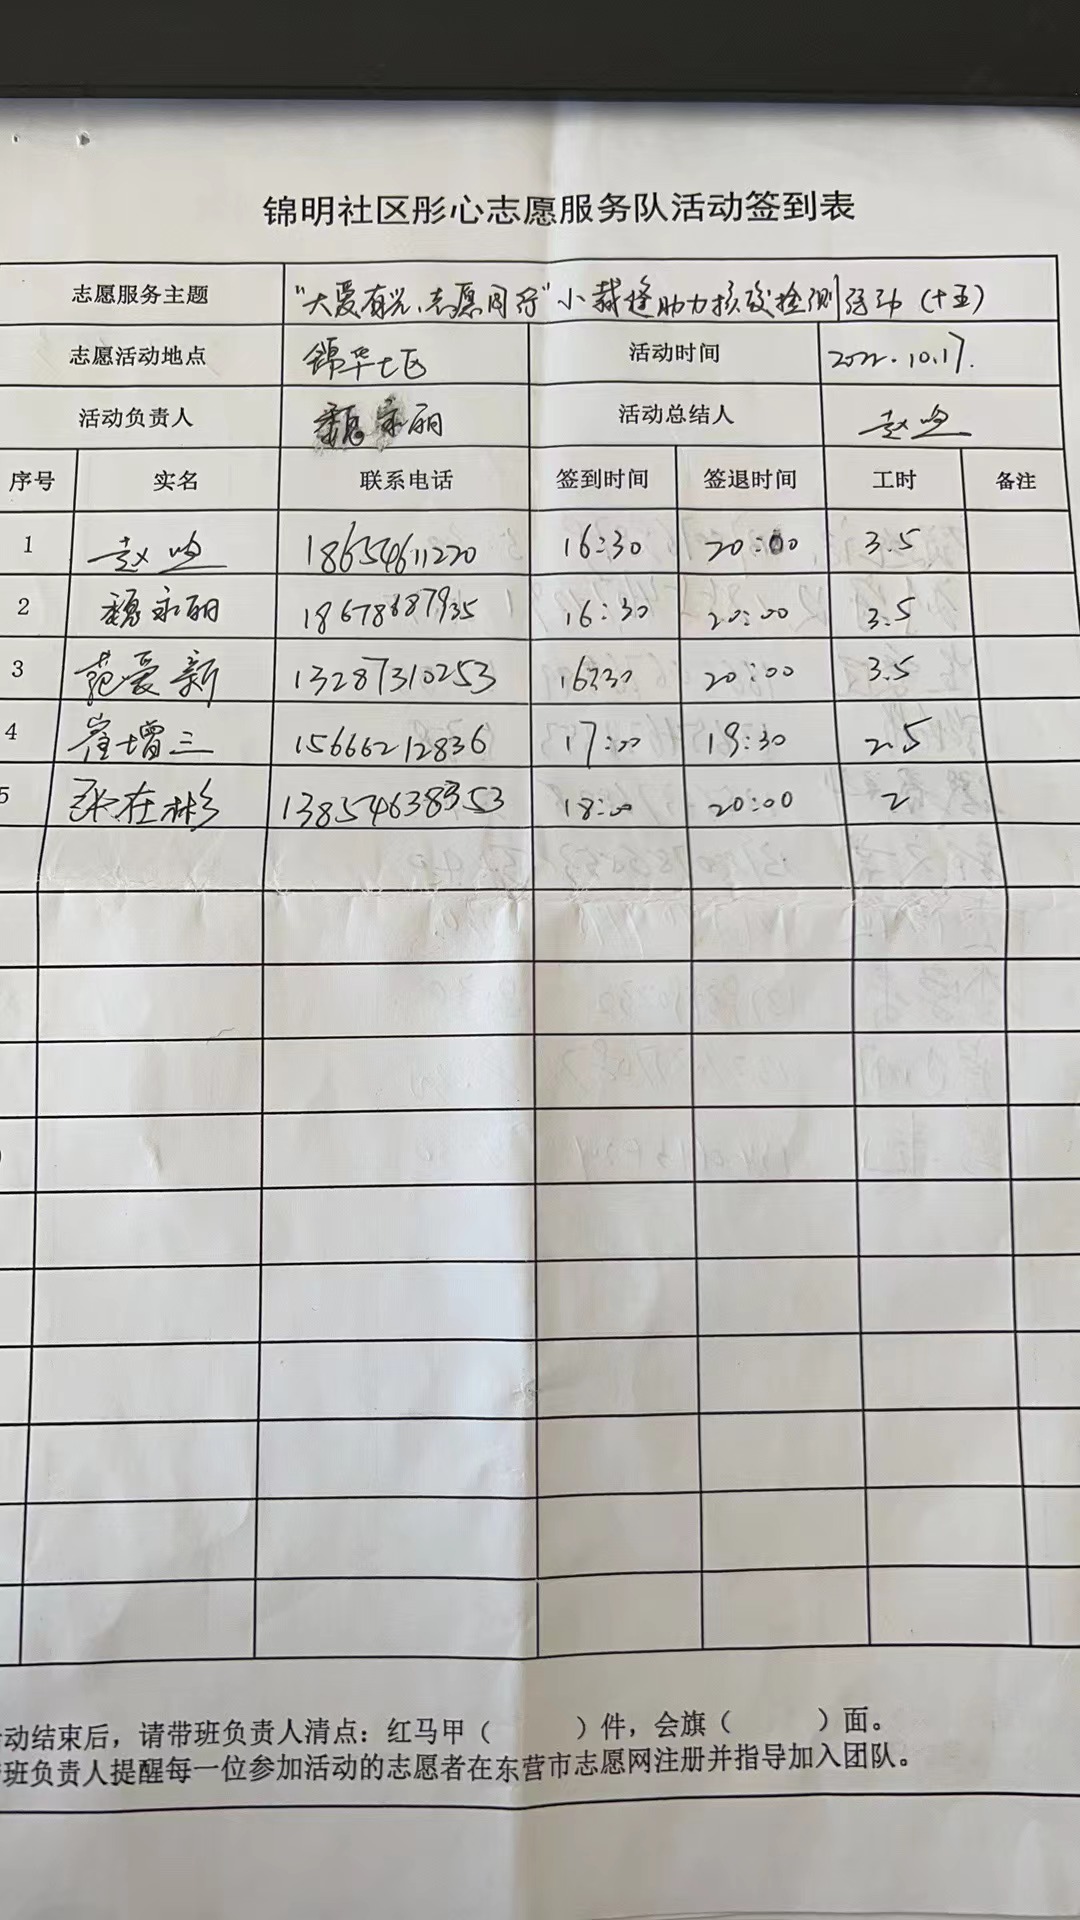 锦明社区彤心志愿服务队活动签到表
志愿服务主题 "大爱有光、志愿同行"小裁缝助力核酸检测活动（十五）
志愿活动地点 锦华社区 活动时间 2022.10.17.
活动负责人 魏永丽 活动总结人 赵
序号 实名 联系电话 签到时间 签退时间 工时 备注
1 赵 18654611220 16:30 20:00 3.5
2 魏永丽 18678687935 16:30 20:00 3.5
3 范爱新 13287310253 16:30 20:00 3.5
4 崔增三 15666212836 17:00 19:30 2.5
5 张在彬 13854638353 18:00 20:00 2
动结束后，请带班负责人清点：红马甲（ ）件，会旗（ ）面。
班负责人提醒每一位参加活动的志愿者在东营市志愿网注册并指导加入团队。